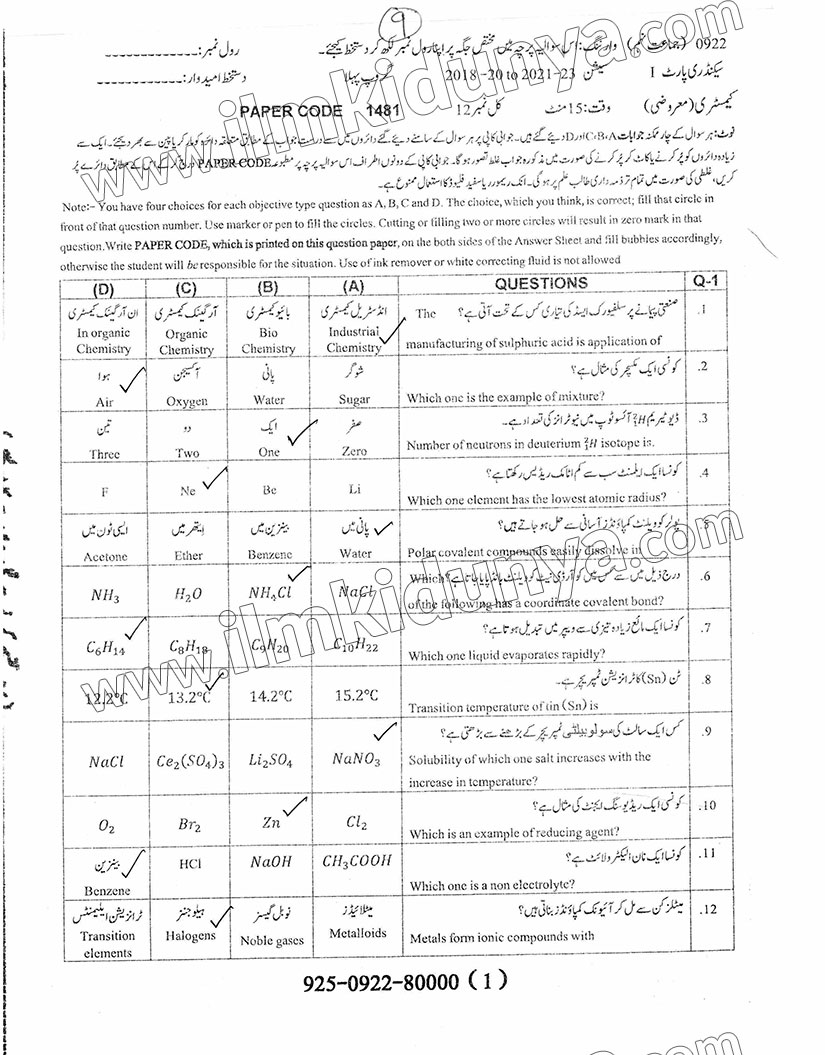 9
0922 (جماعت نہم) وارننگ: اس سوالیہ پرچہ میں مختص جگہ پر اپنا رول نمبر لکھ کر دستخط کیجئے۔ رول نمبر: ------------
سیکنڈری پارٹ I سیشن 2018-20 to 2021-23 گروپ پہلا دستخط امیدوار: ------------
کیمسٹری (معروضی) وقت: 15 منٹ کل نمبر 12 PAPER CODE 1481
نوٹ: ہر سوال کے چار ممکنہ جوابات C،B،A اور D دیئے گئے ہیں۔ جوابی کاپی پر ہر سوال کے سامنے دیئے گئے دائروں میں سے درست جواب کے مطابق متعلقہ دائرہ کو مارکر یا پین سے بھر دیجئے۔ ایک سے
زیادہ دائروں کو پُر کرنے یا کاٹ کر پُر کرنے کی صورت میں مذکورہ جواب غلط تصور ہوگا۔ جوابی کاپی کے دونوں اطراف اس سوالیہ پرچہ پر مطبوعہ PAPER CODE درج کر کے اس کے مطابق دائرے پُر
کریں، غلطی کی صورت میں تمام تر ذمہ داری طالب علم پر ہوگی۔ انک ریمور یا سفید فلیوڈ کا استعمال ممنوع ہے۔
Note:- You have four choices for each objective type question as A, B, C and D. The choice, which you think, is correct; fill that circle in
front of that question number. Use marker or pen to fill the circles. Cutting or filling two or more circles will result in zero mark in that
question.Write PAPER CODE, which is printed on this question paper, on the both sides of the Answer Sheet and fill bubbles accordingly,
otherwise the student will be responsible for the situation. Use of ink remover or white correcting fluid is not allowed
(D) (C) (B) (A) QUESTIONS Q-1
ان آرگینک کیمسٹری آرگینک کیمسٹری بائیو کیمسٹری انڈسٹریل کیمسٹری The صنعتی پیمانے پر سلفیورک ایسڈ کی تیاری کس کے تحت آتی ہے؟ .1
In organic Chemistry Organic Chemistry Bio Chemistry Industrial Chemistry manufacturing of sulphuric acid is application of
ہوا آکسیجن پانی شوگر کونسی ایک مکسچر کی مثال ہے؟ .2
Air Oxygen Water Sugar Which one is the example of mixture?
تین دو ایک صفر ڈیوٹیریم ²₁H آئسوٹوپ میں نیوٹرانز کی تعداد ہے۔ .3
Three Two One Zero Number of neutrons in deuterium ²₁H isotope is.
کونسا ایک ایلیمنٹ سب سے کم اٹامک ریڈیس رکھتا ہے؟ .4
F Ne Be Li Which one element has the lowest atomic radius?
ایسی ٹون میں ایتھر میں بینزین میں پانی میں پولر کوویلنٹ کمپاؤنڈز آسانی سے حل ہو جاتے ہیں؟ .5
Acetone Ether Benzene Water Polar covalent compounds easily dissolve in
Which درج ذیل میں سے کس میں کوآرڈی نیٹ کوویلنٹ بانڈ پایا جاتا ہے؟ .6
NH₃ H₂O NH₄Cl NaCl of the following has a coordinate covalent bond?
کونسا ایک مائع زیادہ تیزی سے ویپر میں تبدیل ہوتا ہے؟ .7
C₆H₁₄ C₈H₁₈ C₉H₂₀ C₁₀H₂₂ Which one liquid evaporates rapidly?
ٹن (Sn) کا ٹرانزیشن ٹمپریچر ہے۔ .8
12.2°C 13.2°C 14.2°C 15.2°C Transition temperature of tin (Sn) is
کس ایک سالٹ کی سولوبیلٹی ٹمپریچر کے بڑھنے سے بڑھتی ہے؟ .9
NaCl Ce₂(SO₄)₃ Li₂SO₄ NaNO₃ Solubility of which one salt increases with the
increase in temperature?
کونسی ایک ریڈیوسنگ ایجنٹ کی مثال ہے؟ .10
O₂ Br₂ Zn Cl₂ Which is an example of reducing agent?
بینزین HCl NaOH CH₃COOH کونسا ایک نان الیکٹرولائٹ ہے؟ .11
Benzene Which one is a non electrolyte?
ٹرانزیشن ایلیمنٹس ہیلوجنز نوبل گیسز میٹلائیڈز میٹلز کن سے مل کر آئیونک کمپاؤنڈز بناتی ہیں؟ .12
Transition elements Halogens Noble gases Metalloids Metals form ionic compounds with
925-0922-80000 (1)
www.ilmkidunya.com
www.ilmkidunya.com
www.ilmkidunya.com